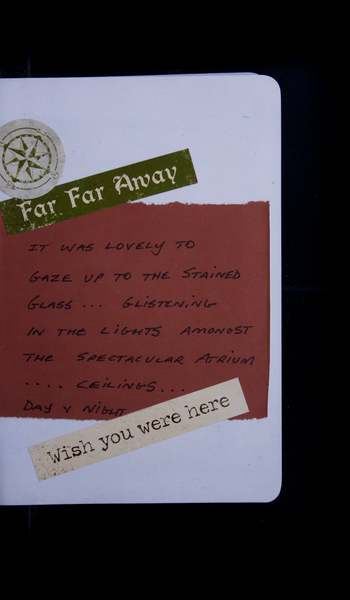 Far Far Away
IT WAS LOVELY TO
GAZE UP TO THE STAINED
GLASS ... GLISTENING
IN THE LIGHTS AMONGST
THE SPECTACULAR ATRIUM
.... CEILINGS...
DAY & NIGHT
Wish you were here